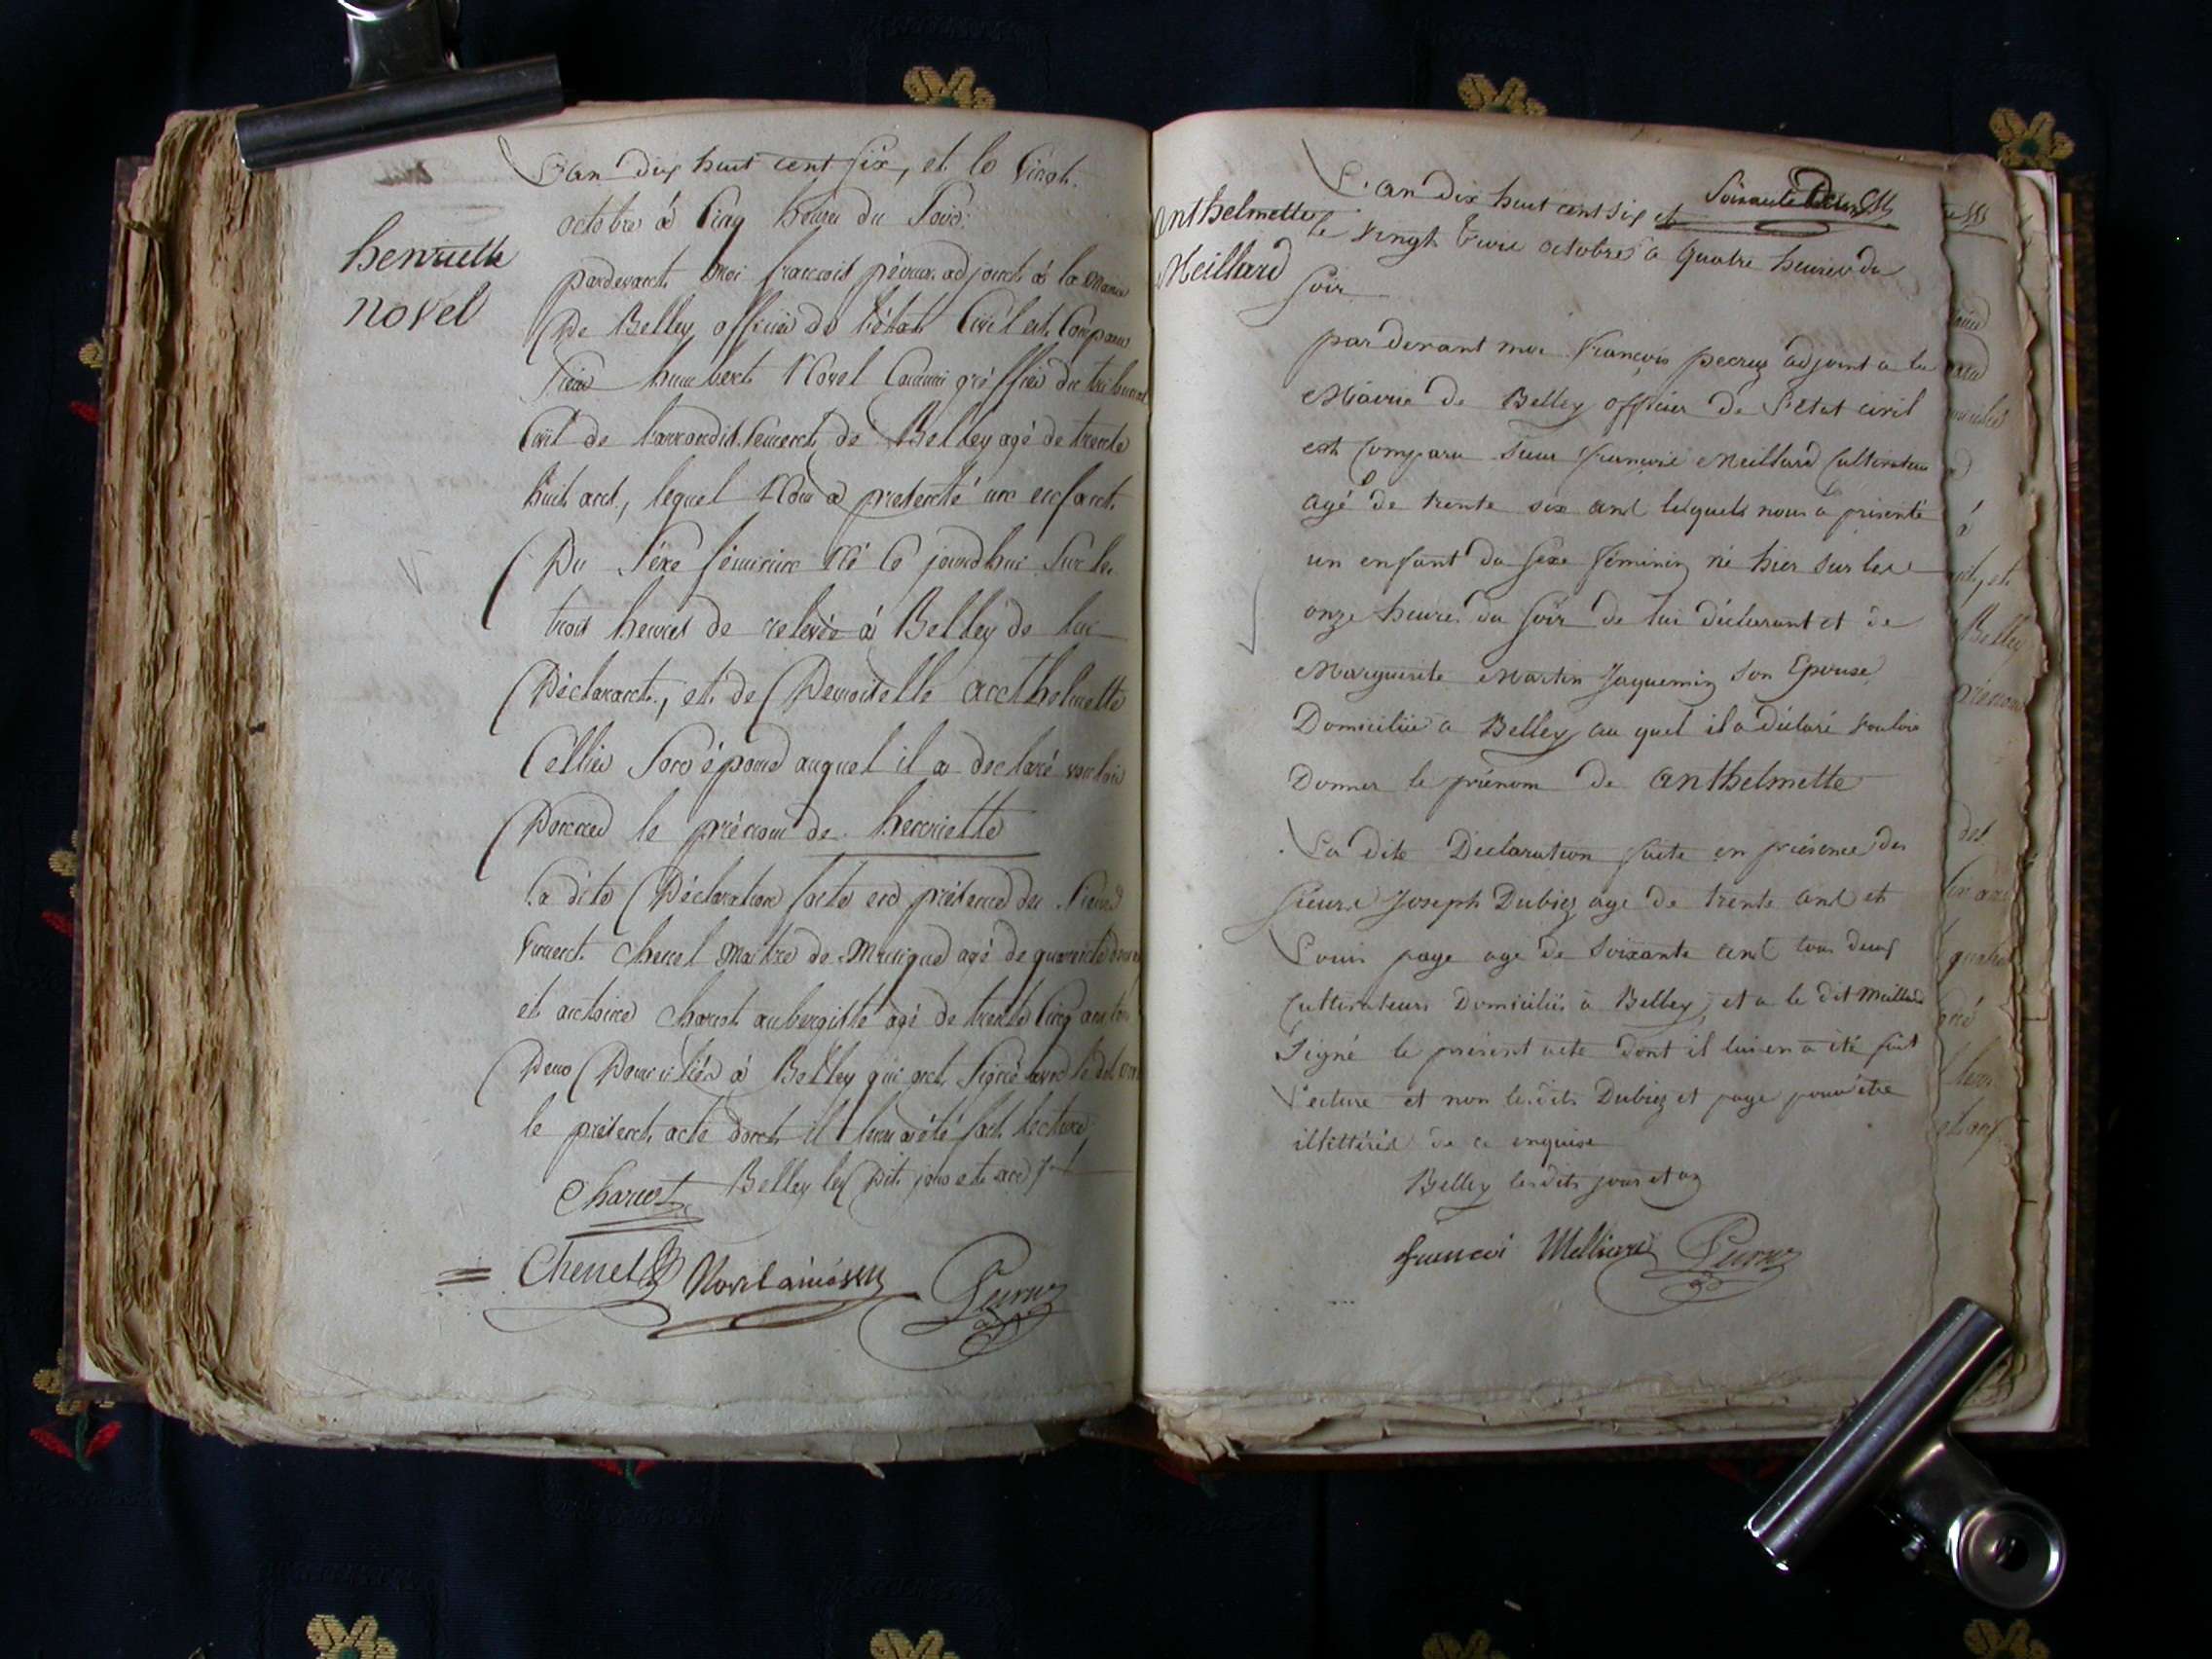 henriette
novel
L'an dix huit cent six, et le vingt
octobre à cinq heures du soir.
pardevant moi françois péceux adjoint à la mairie
De Belley officier de l'état civil est comparu
sieur humbert Novel commis gréffier du tribunal
civil de l'arrondissement de Belley agé de trente
huit ans, lequel nous a presenté un enfant
Du séxe féminin né ce jourdhui sur les
trois heures de relevée à Belley de lui
Déclarant, et de Demoiselle anthelmette
Cellier son épouse auquel il a declaré vouloir
Donner le prénom de henriette
La dite Déclaration faite en présence des sieurs
vincent chenel maitre de musique agé de quarante
et antoine charcot aubergiste agé de trente cinq ans tous
Deux Domiciliés à Belley qui ont signé avec le dit
le présent acte dont il leur a été fait lecture
Belley les Dit jour et an
Charcot
Chenel Novel ainé
Anthelmette
Meillard
Soixante Deux
L'an dix huit cent six et
le vingt trois octobre a quatre heures du
soir
par devant moi françois peceux adjoint a la
Mairie de Belley officier de l'etat civil
est comparu sieur françois Meillard cultivateur
agé de trente six ans lequels nous a présenté
un enfant du sexe féminin né hier sur les
onze heures du soir de lui déclarant et de
Marguerite Martin Jaquemin son Epouse
Domiciliée a Belley au quel il a déclaré vouloir
Donner le prénom de anthelmette
La dite Déclaration faite en présence des
sieurs Joseph Dubiez agé de trente ans et
Louis page agé de soixante ans tous deux
cultivateurs Domiciliés à Belley, et a le dit Meillard
signé le présent acte dont il lui en a été fait
Lecture et non lesdits Dubiez et page pour être
illittérés de ce enquise
Belley lesdits jour et an
francoi Melliard